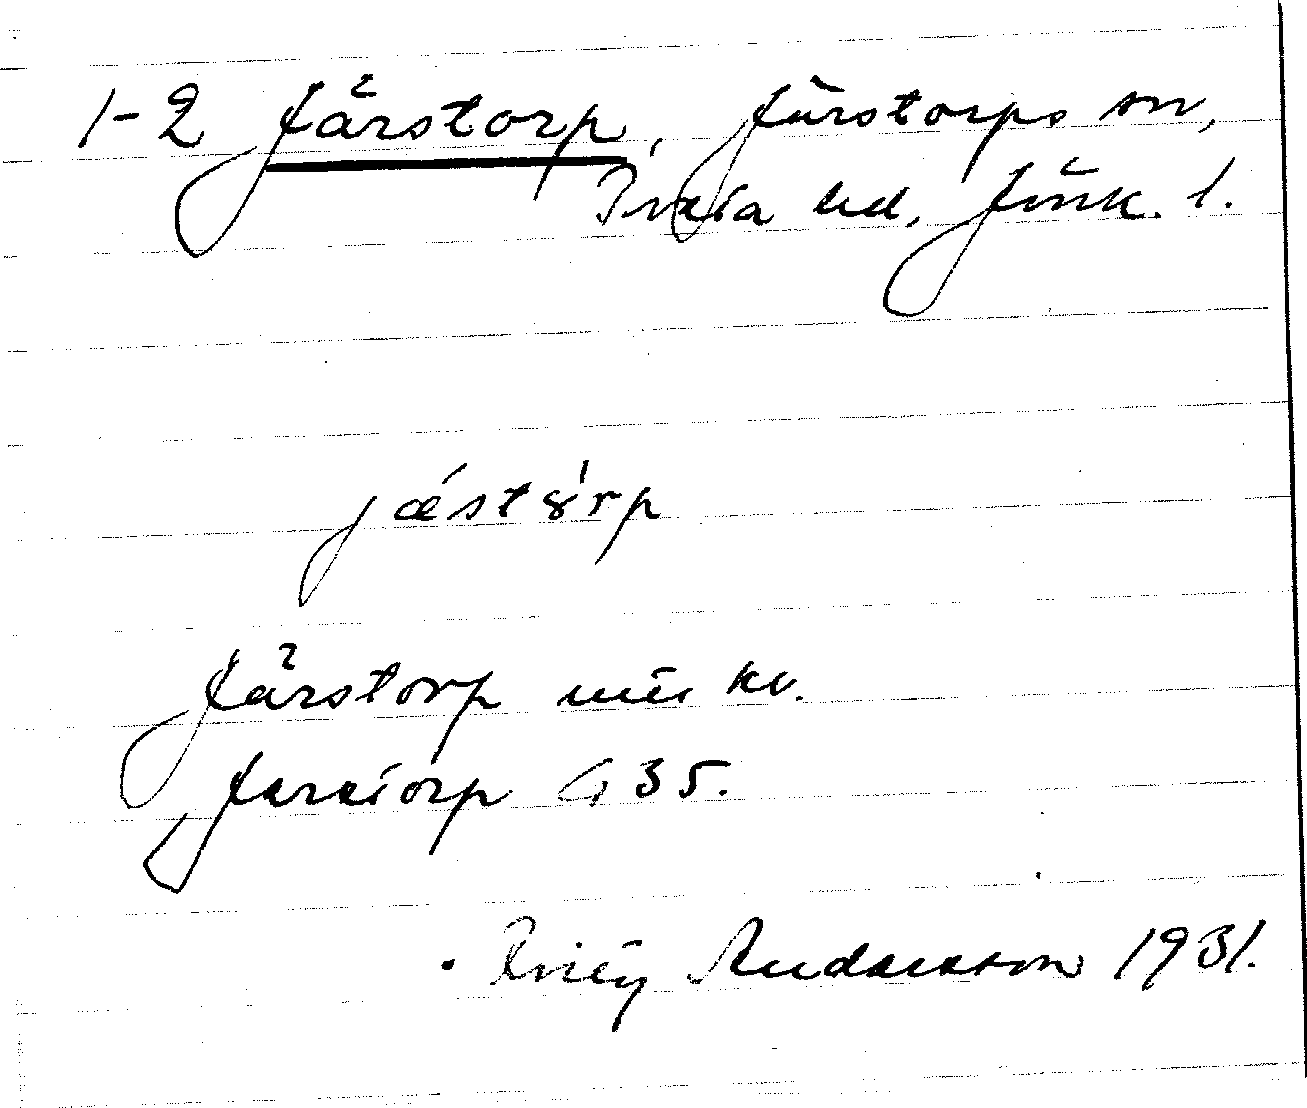 1-2 Järstorp, Järstorps sn,
Tveta hd, Jönk. l.
jǽst8́rp
Järstorp kv.
Jarstorp G 35.
Andersson 1931.